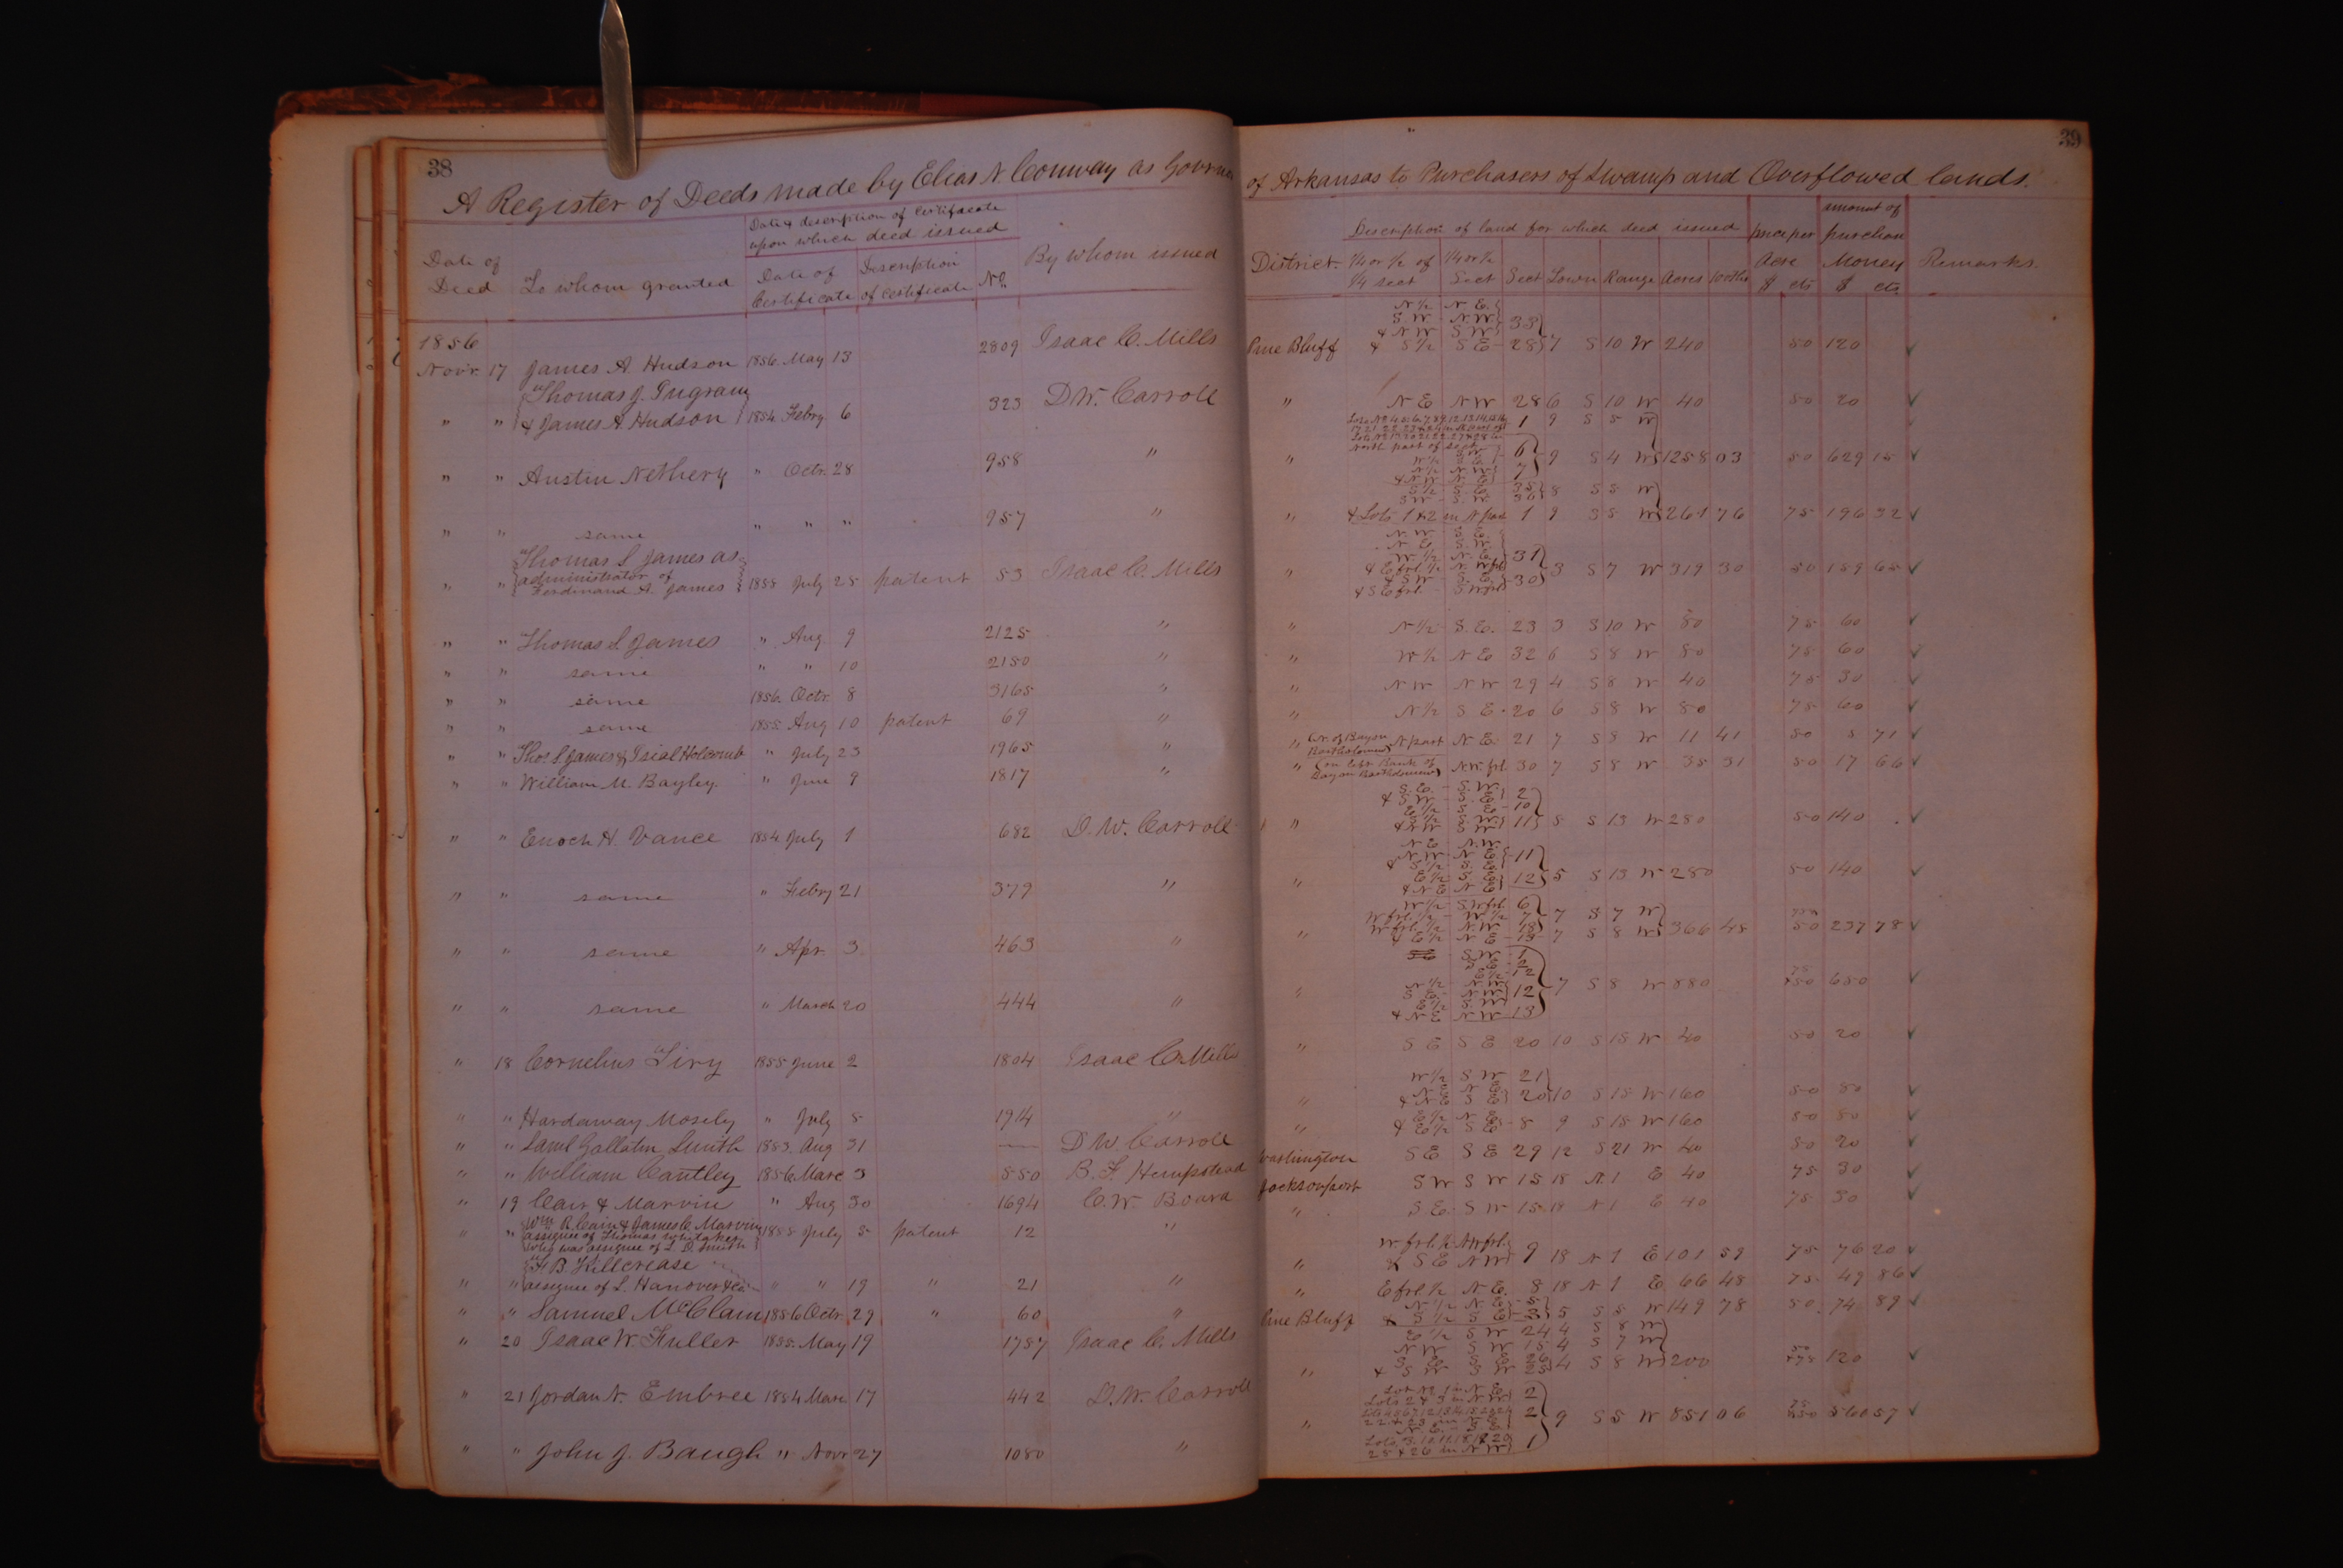 38
A Register of Deeds made by Elias N. Conway as Governor
Date & description of certificate
upon which deed issued
Date of
Deed
To whom granted
Date of
Certificate
Description
of certificate
No.
By whom issued
1856
Novr. 17 James A Hudson 1856. May 13 2809 Isaac C. Mills
Thomas J. Ingram
" " & James A. Hudson 1854. Febry 6 323 D W. Carroll
" " Austin Nethery " Octr. 28 958 "
" " same " " " 957 "
Thomas S James as
administrator of
" " Ferdinand A. James 1855 July 25 patent 53 Isaac C. Mills
" " Thomas S. James " Aug 9 2125 "
" " same " " 10 2130 "
" " same 1856. Octr. 8 3165 "
" " same 1855. Aug 10 patent 69 "
" " Thos S James & Holcomb " July 23 1965 "
" " William M. Bayley. " June 9 1817 "
" " Enoch H. Vance 1854 July 1 682 D. W. Carroll
" " same " Febry 21 379 "
" " same " Apr 3 463 "
" " same " March 20 444 "
" 18 Cornelius 1855 June 2 1804 Isaac C. Mills
" " Hardaway Mosely " July 5 1914 "
" " Saml Gallatin Smith 1853. Aug 31 — D W. Carroll
" " William Cantley 1856. Marc 3 550 B. F. Hempstead
" 19 Cain & Marvin " Aug 30 1694 C. W. Board
Wm R. Cain & James C. Marvin
" " assignee of Thomas Whitaker 1855 July 5 patent 12 "
who was assignee of L. D. Smith
F B. Killcrease
" " assignee of L. Hanover & Co " " 19 " 21 "
" " Samuel McClain 1856 Octr. 29 " 60 "
" 20 Isaac W. Fuller 1855. May 19 1757 Isaac C. Mills
" 21 Jordan N. Embree 1854 Marc 17 442 D. W. Carroll
" " John J. Baugh " Novr 27 1080 "
39
of Arkansas to Purchasers of Swamp and Overflowed lands.
Description of land for which deed issued
District.
1/4 or 1/2 of
1/4 sect
1/4 or 1/2
Sect
Sect Town Range Acres 100ths
price per
Acre
$ cts
amount of
purchase
Money
$ cts
Remarks.
N 1/2 N E.
S. W N W
& N W S W 33
Pine Bluff & S 1/2 S E 28 7 S 10 W 240 50 120 ✓
" N E N W 28 6 S 10 W 40 50 20 ✓
1 9 S 5 W
north part of sect
S W 6
" W 1/2 S E 9 S 4 W 1258 03 50 629 15 ✓
N 1/2 N W 7
& N W N E
S 1/2 S E 35 8 S 5 W
S W S. W. 36
" & Lots 1 & 2 in N part 1 9 S 5 W 261 76 75 196 32 ✓
N W S E
N E S W
W 1/2 N. E 31
" & E frl. 1/2 N. W frl 3 S 7 W 319 30 50 159 65 ✓
& S W S. E 30
& S E frl. S W frl
" N 1/2 S. E. 23 3 S 10 W 80 75 60 ✓
" W 1/2 N E 32 6 S 8 W 80 75 60 ✓
" N W N W 29 4 S 8 W 40 75 30 ✓
" N 1/2 S E 20 6 S 8 W 80 75 60 ✓
" W. of Bayou
Bartholomew N part N E. 21 7 S 8 W 11 41 50 5 71 ✓
" on left Bank of
Bayou Bartholomew N. W. frl. 30 7 S 8 W 35 31 50 17 66 ✓
S. E. S. W. 2
& S W S. E
E 1/2 N E 10
" & N W S W 11 5 S 13 W 280 50 140 ✓
N E N. W
N W N E 11
& S 1/2 S. E
" E 1/2 S E 12 5 S 13 W 280 50 140 ✓
& N E N E
W 1/2 S W frl. 6
W frl. 1/2 W 1/2 7 7 S 7 W 75
W frl. 1/2 N. W 18
" & E 1/2 N E 13 7 S 8 W 366 48 50 237 78 ✓
S W 1
S E 2
N 1/2 75
" 12 7 S 8 W 880 & 50 650 ✓
E 1/2 S. W
& N E N W 13
" S E S E 20 10 S 15 W 40 50 20 ✓
W 1/2 S W 21
N E N E
" & N E S E 20 10 S 15 W 160 50 80 ✓
E 1/2 N E
" & E 1/2 S E 8 9 S 15 W 160 50 80 ✓
Washington S E S E 29 12 S 21 W 40 50 20 ✓
Jacksonport S W S W 15 18 N 1 E 40 75 30 ✓
" S E. S W 15 18 N 1 E 40 75 30 ✓
W. frl. 1/2 N W frl.
" & S E N W 9 18 N 1 E 101 59 75 76 20 ✓
" E frl 1/2 N E. 8 18 N 1 E 66 48 75 49 86 ✓
N 1/2 N E 5
Pine Bluff & S 1/2 S E 3 5 S 5 W 149 78 50 74 89 ✓
E 1/2 S W 24 4 S 8 W
N W S W 15 4 S 7 W
S E S E 26 50
" & S W S W 25 4 S 8 W 200 & 75 120 ✓
Lot No 1 in N E 2
Lots 2 & 3 in N W
2 75
" 9 S 5 W 851 06 & 50 560 57 ✓
1
25 & 26 in N W